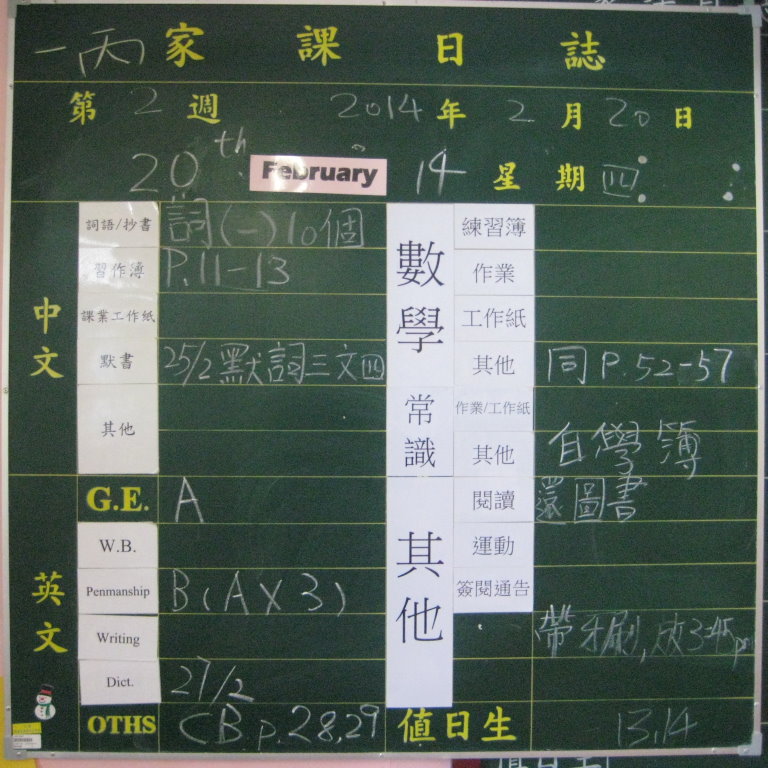 一丙 家課日誌
第 2 週 2014 年 2 月 20 日
20th February 14 星期 四
中文
詞語/抄書 詞(一)10個
習作簿 P.11-13
課業工作紙
默書 25/2 默詞三文四
其他
英文
G.E. A
W.B.
Penmanship B(A×3)
Writing
Dict. 27/2
OTHS CB p.28,29
數學
練習簿
作業
工作紙
其他 同 P.52-57
常識
作業/工作紙
其他 自學簿
其他
閱讀 還圖書
運動
簽閱通告
帶牙刷,放3:45p
值日生 13,14